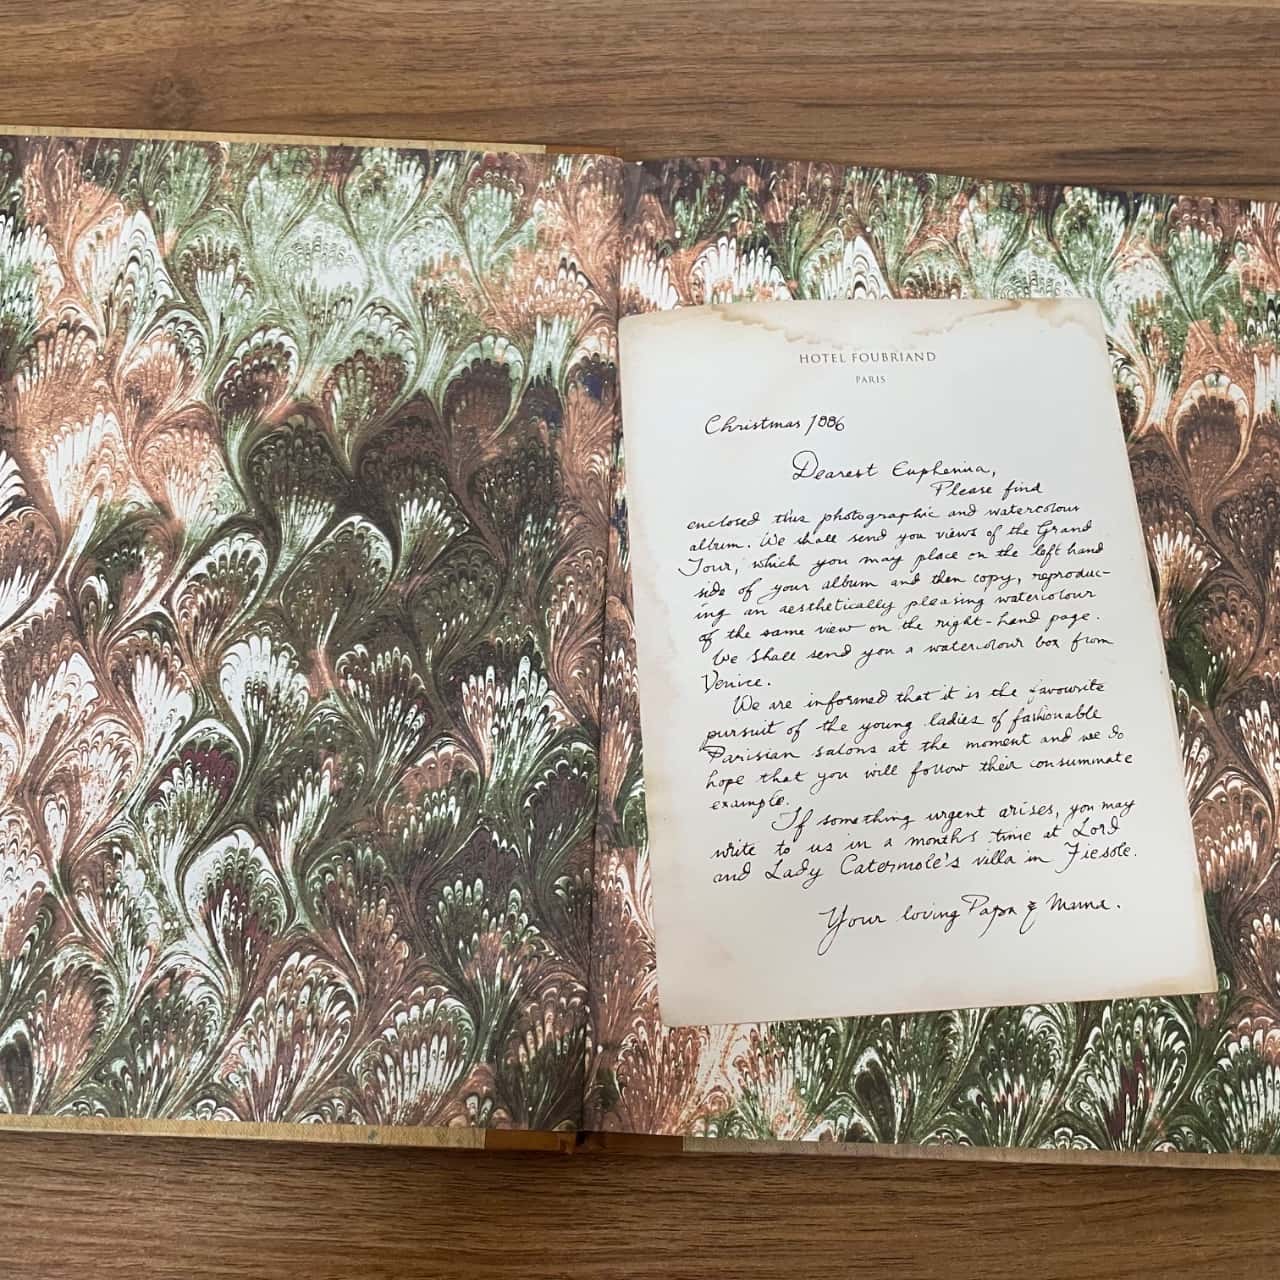 HOTEL FOUBRIAND
PARIS
Christmas 1886
Dearest Euphemia,
Please find
enclosed this photographic and watercolour
album. We shall send you views of the Grand
Tour, which you may place on the left hand
side of your album and then copy, reproduc-
ing an aesthetically pleasing watercolour
of the same view on the right-hand page.
We shall send you a watercolour box from
Venice.
We are informed that it is the favourite
pursuit of the young ladies of fashionable
Parisian salons at the moment and we do
hope that you will follow their consummate
example.
If something urgent arises, you may
write to us in a month's time at Lord
and Lady Catermole's villa in Fiesole.
Your loving Papa & Mama.